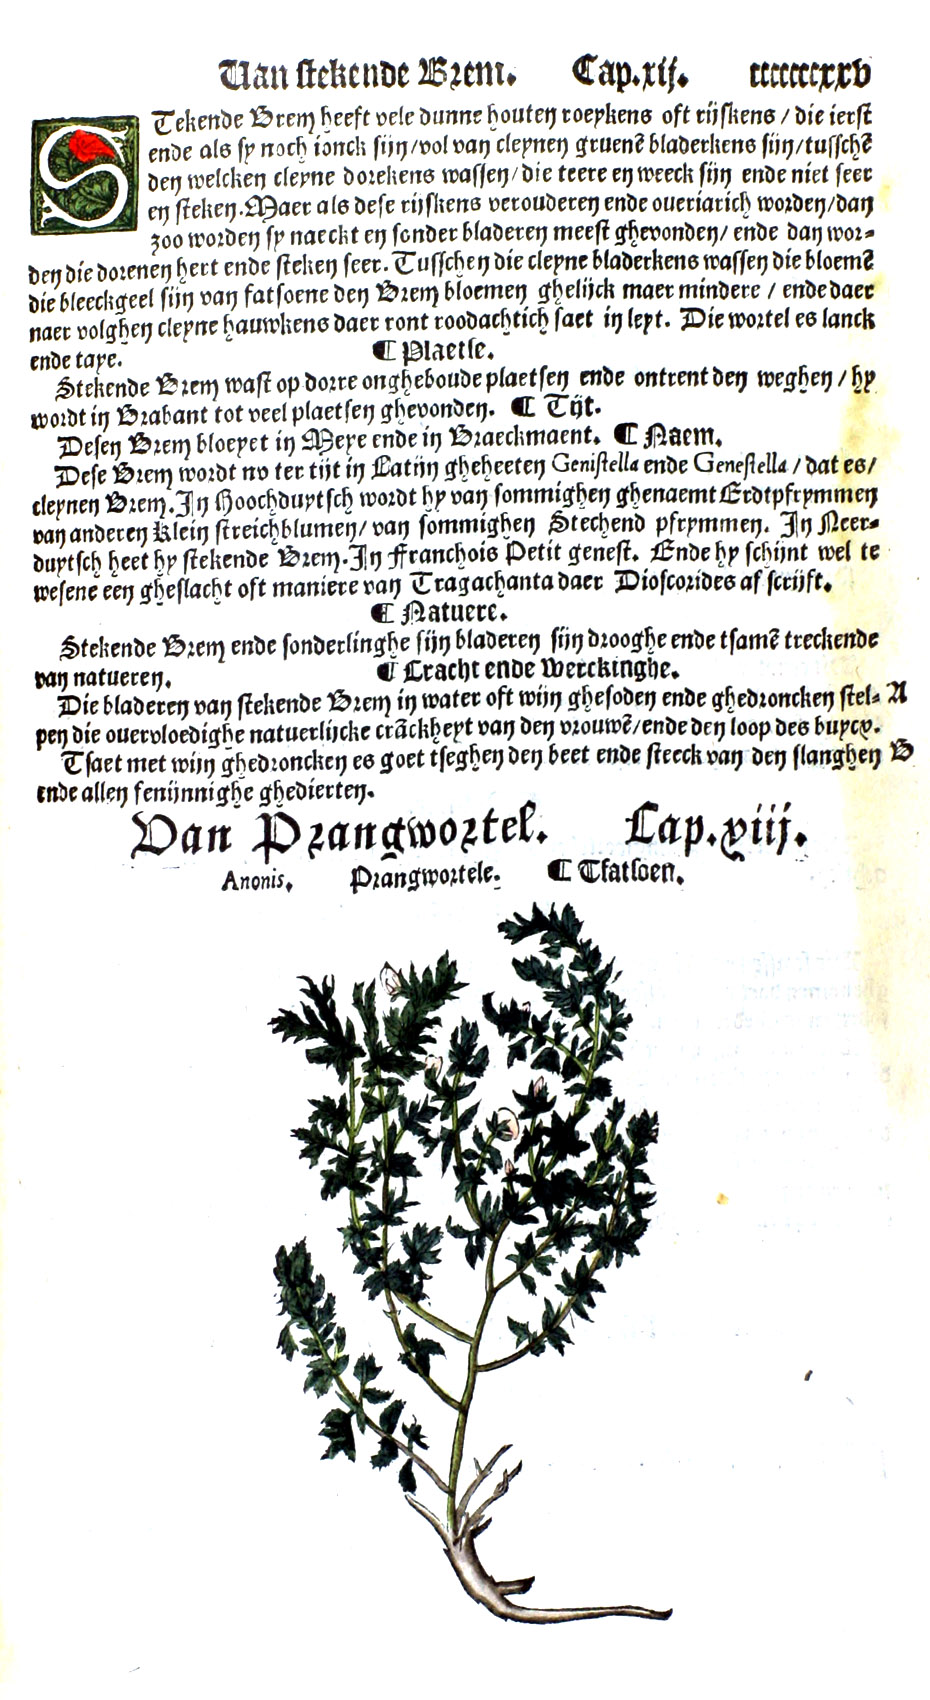 Van stekende Brem. Cap.xij. ccccccxxv
STekende Brem heeft vele dunne houten roeykens oft rijskens / die ierst
ende als sy noch ionck sijn/vol van cleynen gruenē bladerkens sijn/tusschē
den welcken cleyne dorekens wassen/die teere en weeck sijn ende niet seer
en steken.Maer als dese rijskens verouderen ende oueriarich worden/dan
zoo worden sy naeckt en sonder bladeren meest ghevonden/ ende dan wor⸗
den die dorenen hert ende steken seer. Tusschen die cleyne bladerkens wassen die bloemē
die bleeckgeel sijn van fatsoene den Brem bloemen ghelijck maer mindere / ende daer
naer volghen cleyne hauwkens daer ront roodachtich saet in leyt. Die wortel es lanck
ende taye. ¶ Plaetse.
Stekende Brem wast op dorre ongheboude plaetsen ende ontrent den weghen / hy
wordt in Brabant tot veel plaetsen ghevonden. ¶ Tijt.
Desen Brem bloeyet in Meye ende in Braeckmaent. ¶ Naem.
Dese Brem wordt nv ter tijt in Latijn gheheeten Genistella ende Genestella / dat es/
cleynen Brem. In Hoochduytsch wordt hy van sommighen ghenaemt Erdtpfrymmen
van anderen Klein streichblumen/ van sommighen Stechend pfrymmen. In Neer⸗
duytsch heet hy stekende Brem. In Franchois Petit genest. Ende hy schijnt wel te
wesene een gheslacht oft maniere van Tragachanta daer Dioscorides af scrijft.
¶ Natuere.
Stekende Brem ende sonderlinghe sijn bladeren sijn drooghe ende tsamē treckende
van natueren. ¶ Cracht ende Werckinghe.
Die bladeren van stekende Brem in water oft wijn ghesoden ende ghedroncken stel⸗ A
pen die ouervloedighe natuerlijcke crāckheyt van den vrouwē/ende den loop des buycx.
Tsaet met wijn ghedroncken es goet tseghen den beet ende steeck van den slanghen B
ende allen fenijnnighe ghedierten.
Van Prangwortel. Cap.xiij.
Anonis. Prangwortele. ¶ Tfatsoen.